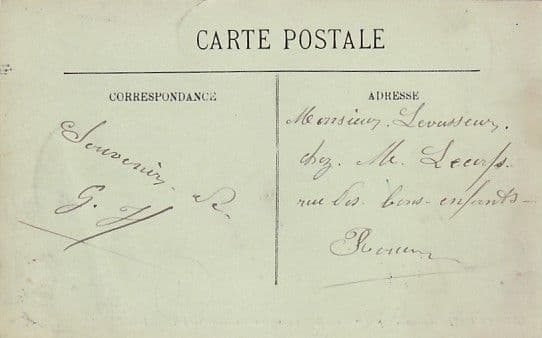 CARTE POSTALE
CORRESPONDANCE
Souvenir
G.
ADRESSE
Monsieur Levasseur.
chez M.
rue des bons-enfants
Rouen